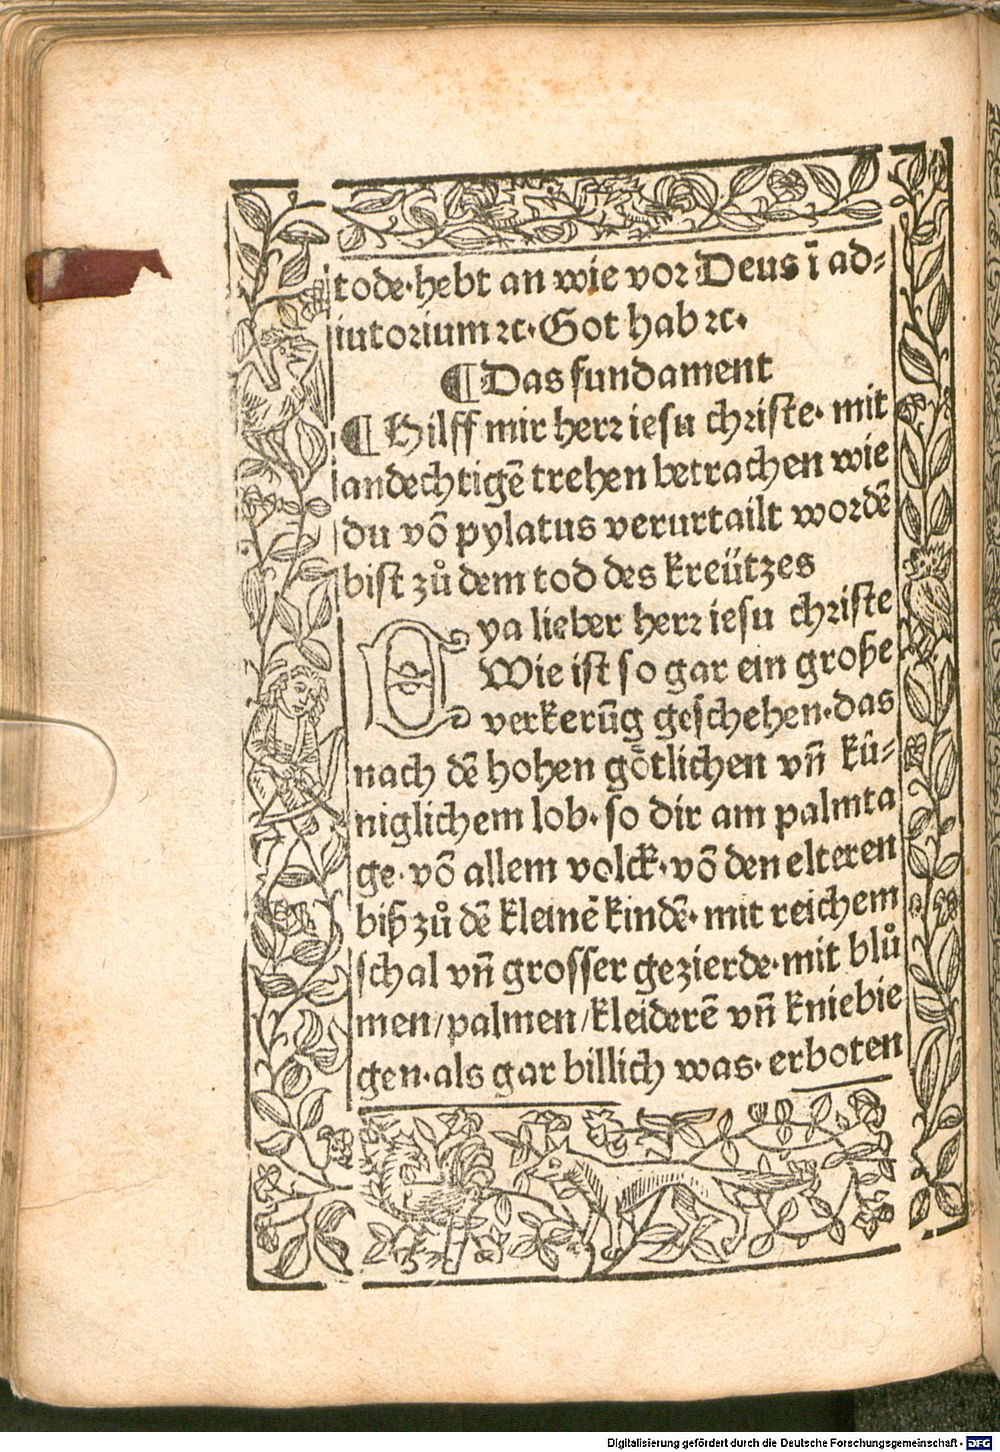 tode·hebt an wie vor Deus ī ad⸗
iutorium ⁊c·Got hab ⁊c·
¶ Das fundament
¶ Hilff mir herr iesu christe· mit
andechtigē trehen betrachen wie
du vō pylatus verurtailt wordē
bist zů dem tod des kreützes
O ya lieber herr iesu christe
Wie ist so gar ein große
verkerūg geschehen·das
nach dē hohen götlichen vn̄ kü⸗
niglichem lob· so dir am palmta
ge· vō allem volck·vō den elteren
biß zů dē kleinē kindē· mit reichem
schal vn̄ grosser gezierde·mit blů
men/palmen/kleiderē vn̄ kniebie
gen·als gar billich was· erboten
Digitalisierung gefördert durch die Deutsche Forschungsgemeinschaft - DFG